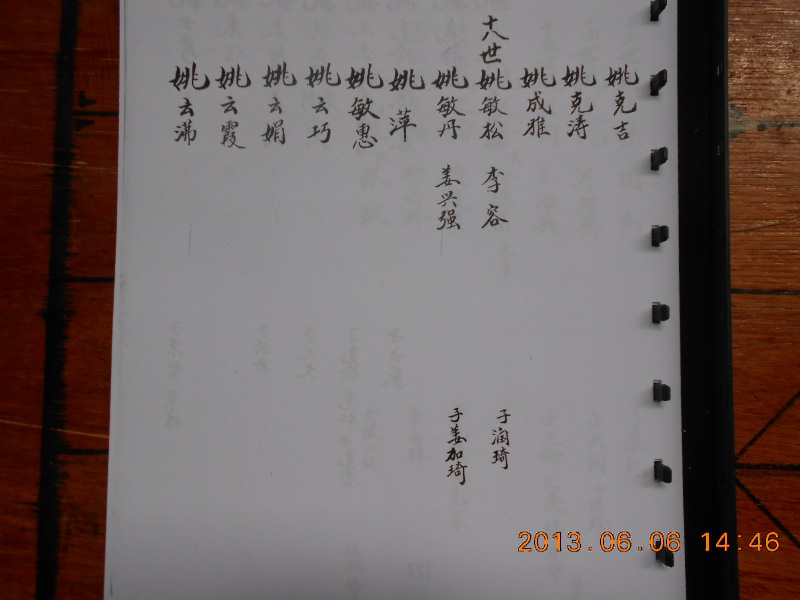 姚克吉
姚克涛
姚成雅
十八世
姚敏松 李容 子润琦
姚敏丹 姜兴强 子姜加琦
姚萍
姚敏惠
姚云巧
姚云娟
姚云霞
姚云
2013.06.06 14:46